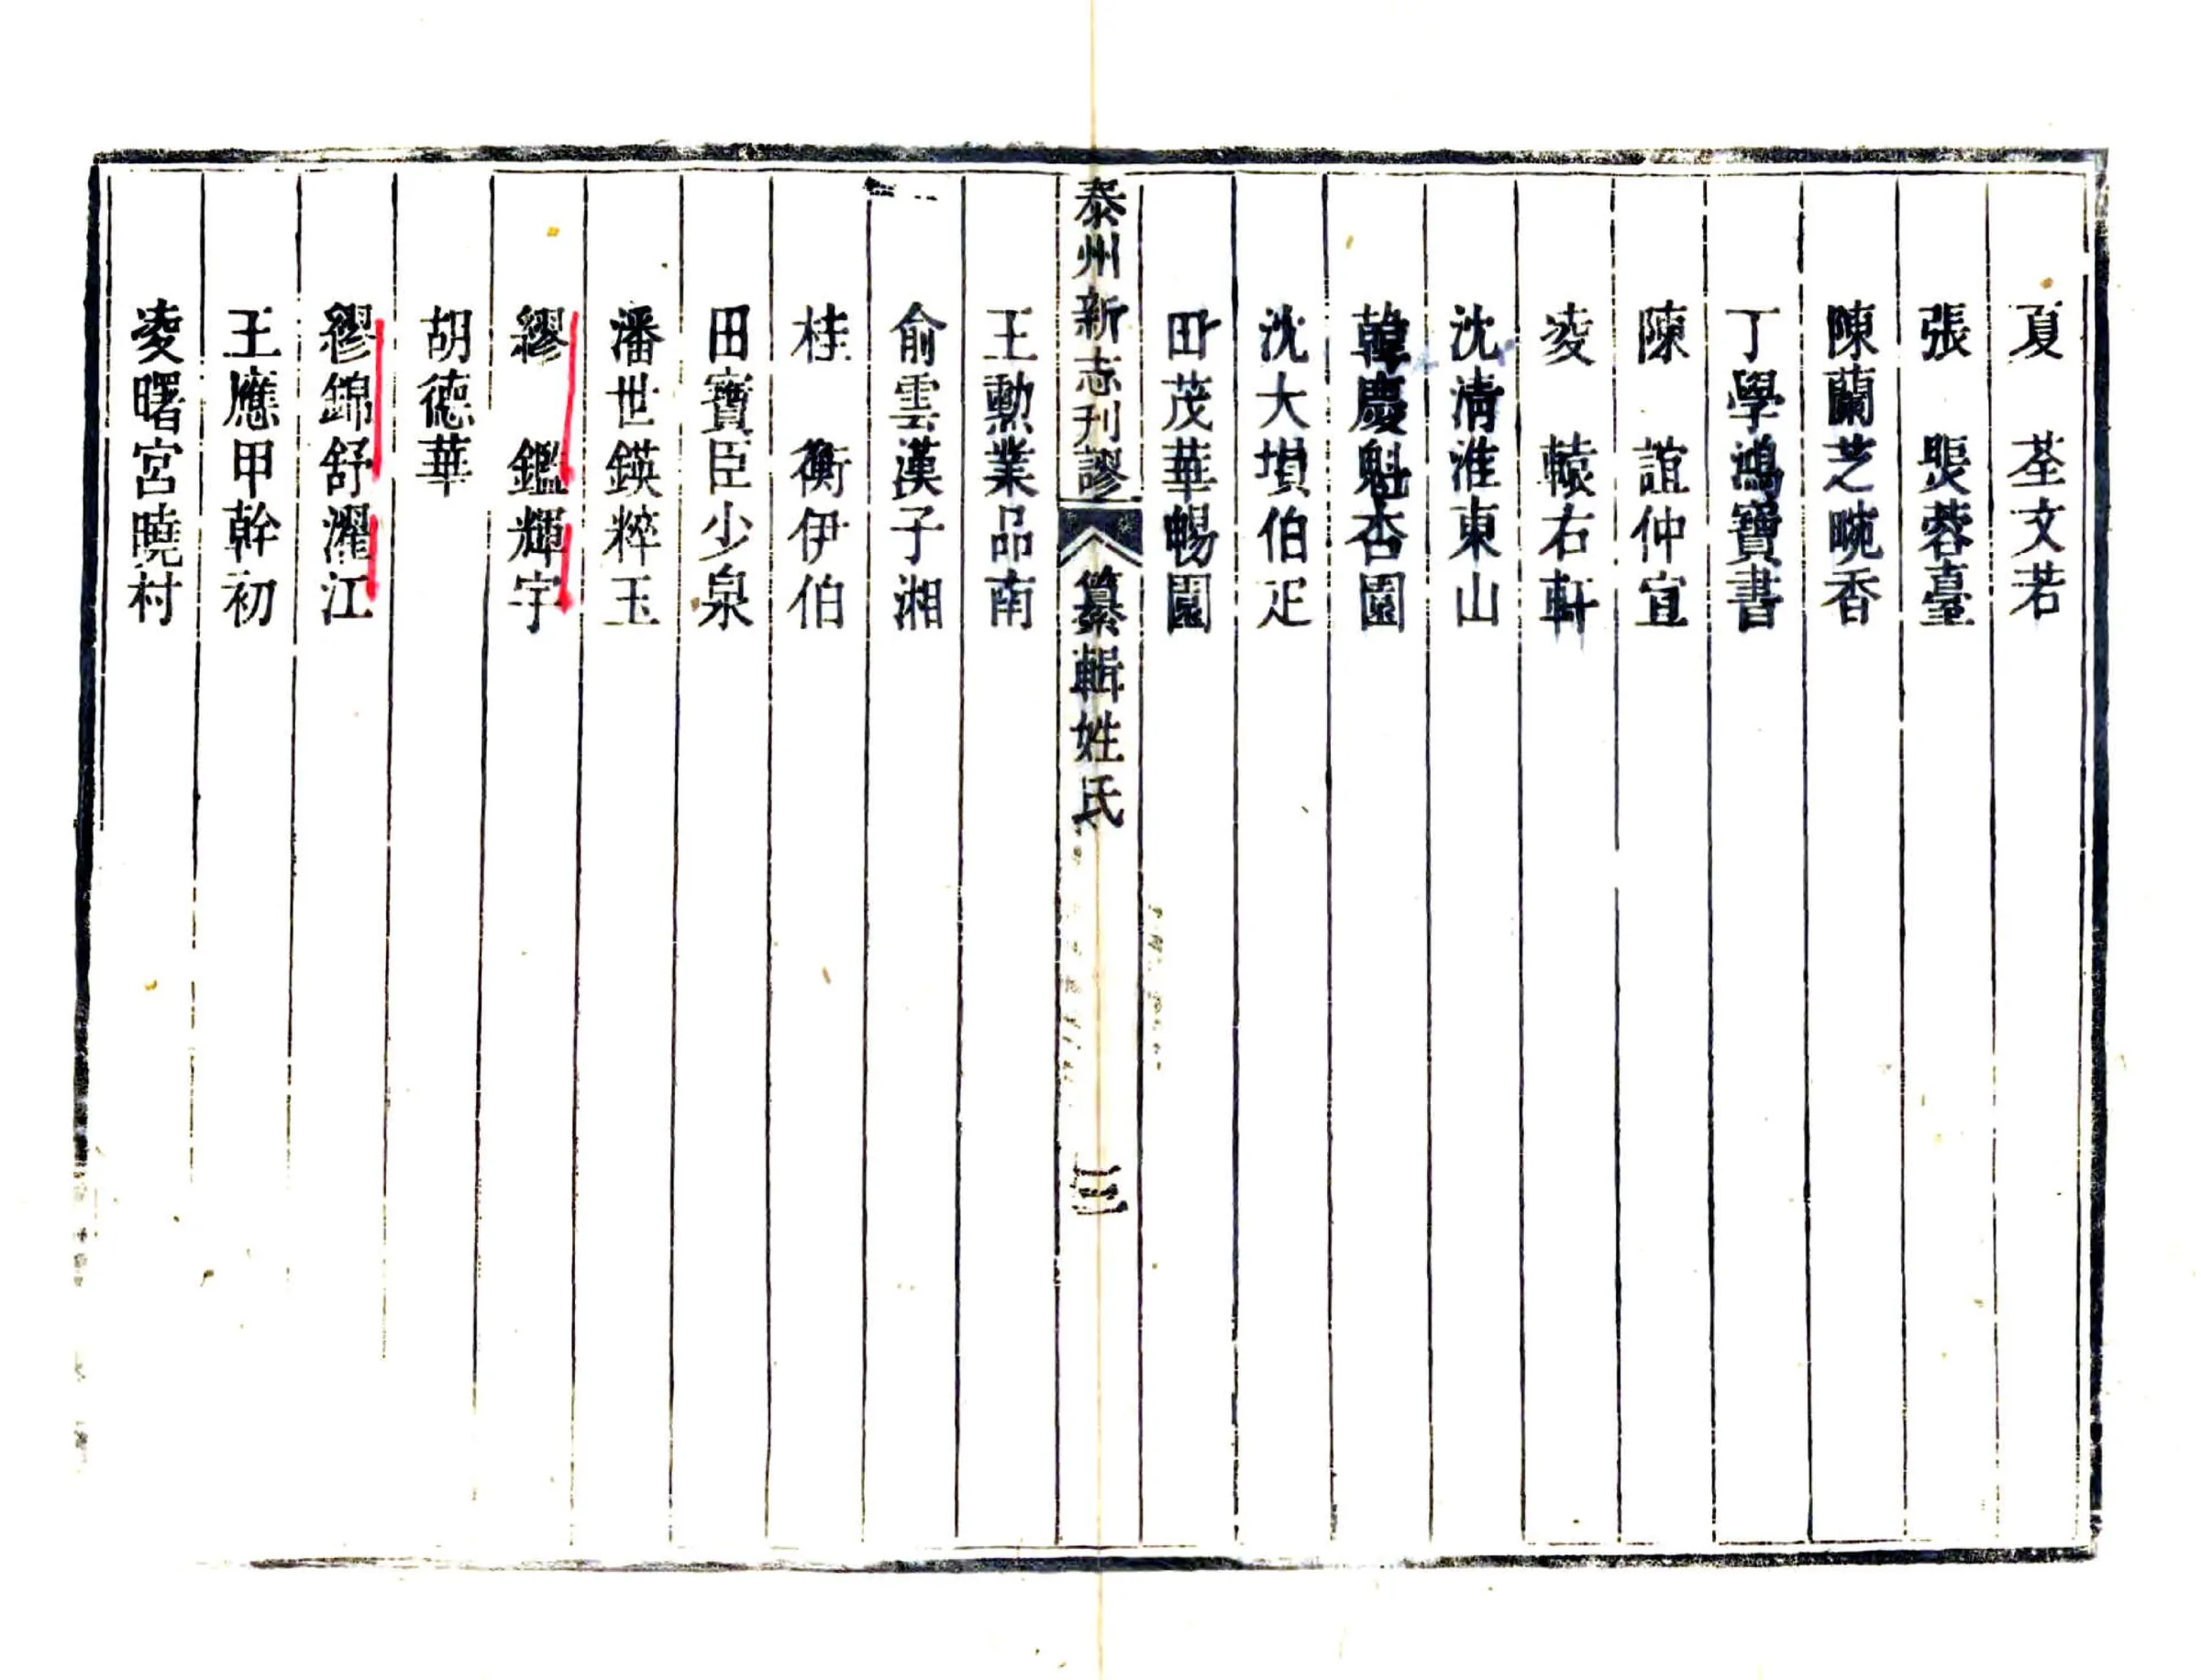 夏　荃文若
張　褧蓉臺
陳蘭芝畹香
丁學鴻寶書
陳　誼仲宜
凌　轅右軒
沈清淮東山
韓慶魁杏園
沈大塤伯疋
田茂華暢園
泰州新志刋謬　纂輯姓氏　三
王勲業品南
俞雲漢子湘
桂　衡伊伯
田寶臣少泉
潘世鍈粹玉
繆　鑑輝宇
胡德華
繆錦舒濯江
王應甲幹初
凌曙宮曉村